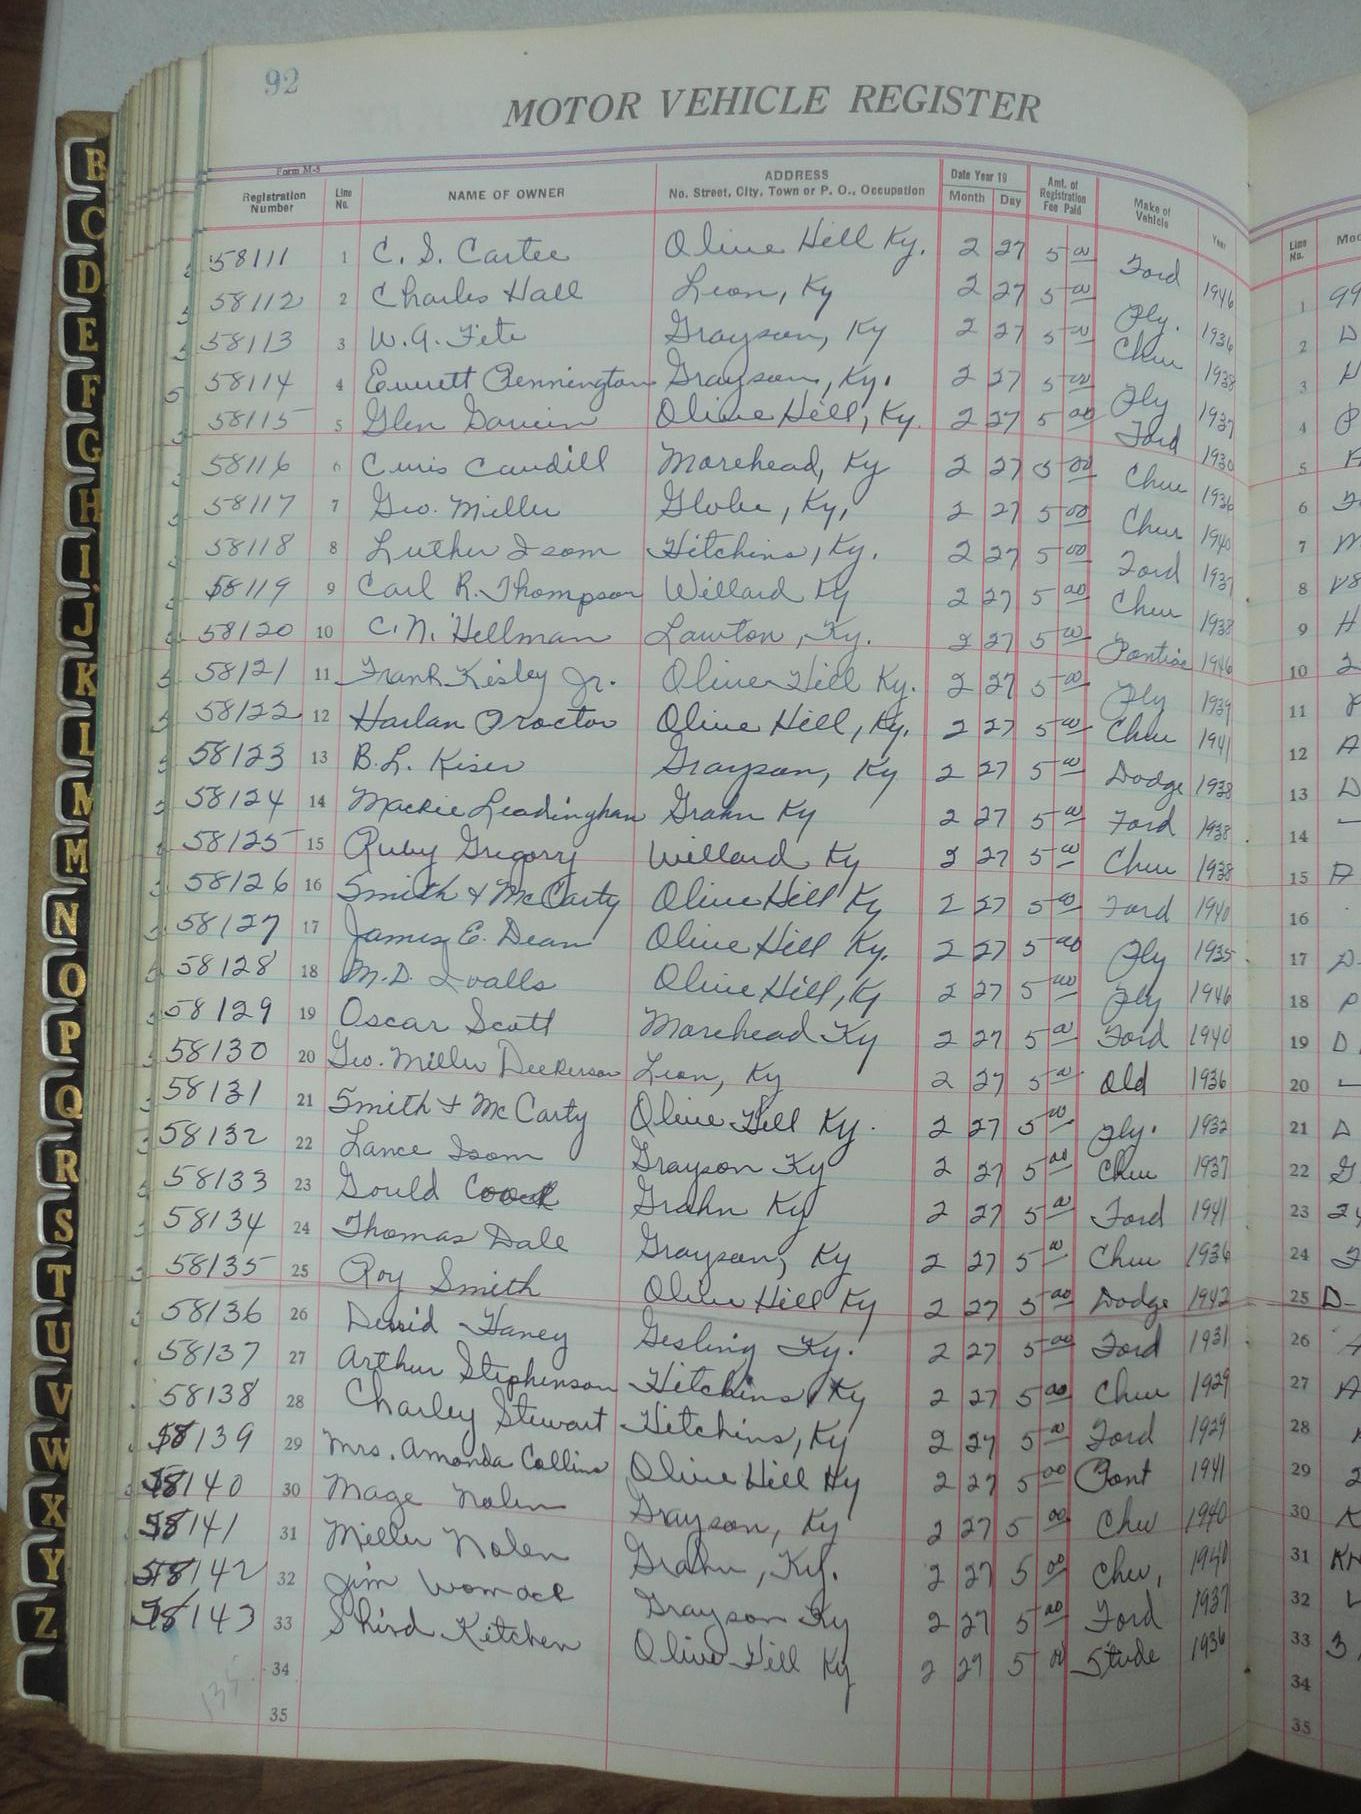 92
MOTOR VEHICLE REGISTER
Form M-5
Registration Number Line No. NAME OF OWNER ADDRESS No. Street, City, Town or P. O., Occupation Date Year 19 Month Day Amt. of Registration Fee Paid Make of Vehicle Year Line No.
58111 1 C. S. Cartee Olive Hill Ky. 2 27 5 00 Ford 1946 1 99
58112 2 Charles Hall Leon, Ky 2 27 5 00 Ply. 1936 2 D
58113 3 W. A. Fite Grayson, Ky 2 27 5 00 Chev 1938 3 H
58114 4 Everett Pennington Grayson, Ky. 2 27 5 00 Ply 1937 4 P
58115 5 Glen Olive Hill, Ky. 2 27 5 00 Ford 1930 5 A
58116 6 Caudill Morehead, Ky 2 27 5 00 Chev 1936 6
58117 7 Geo. Miller Globe, Ky, 2 27 5 00 Chev 1940 7 M
58118 8 Luther Isom Hitchins, Ky. 2 27 5 00 Ford 1937 8 V8
58119 9 Carl R. Thompson Willard Ky 2 27 5 00 Chev 1938 9 H
58120 10 C. N. Hellman Lawton, Ky. 2 27 5 00 Pontiac 1946 10 2
58121 11 Frank Kisley Jr. Olive Hill Ky. 2 27 5 00 Ply 1939 11 P
58122 12 Harlan Proctor Olive Hill, Ky. 2 27 5 00 Chev 1941 12 A
58123 13 B. L. Kiser Grayson, Ky 2 27 5 00 Dodge 1938 13 D
58124 14 Mackie Leadingham Grahn Ky 2 27 5 00 Ford 1938 14
58125 15 Ruby Gregory Willard Ky 2 27 5 00 Chev 1938 15
58126 16 Smith & McCarty Olive Hill Ky 2 27 5 00 Ford 1940 16
58127 17 James E. Dean Olive Hill Ky. 2 27 5 00 Ply 1935 17 D
58128 18 M. D. Qualls Olive Hill, Ky 2 27 5 00 Ply 1946 18 P
58129 19 Oscar Scott Morehead Ky 2 27 5 00 Ford 1940 19 D
58130 20 Geo. Miller Deekerson Leon, Ky 2 27 5 00 Old 1936 20
58131 21 Smith & McCarty Olive Hill Ky. 2 27 5 00 Ply. 1932 21 D
58132 22 Lance Isom Grayson Ky 2 27 5 00 Chev 1937 22 G
58133 23 Gould Grahn Ky 2 27 5 00 Ford 1941 23 24
58134 24 Thomas Dale Grayson, Ky 2 27 5 00 Chev 1936 24
58135 25 Roy Smith Olive Hill Ky 2 27 5 00 Dodge 1942 25 D
58136 26 Haney Gesling Ky. 2 27 5 00 Ford 1931 26
58137 27 Arthur Stephenson Hitchins, Ky 2 27 5 00 Chev 1929 27 A
58138 28 Charley Stewart Hitchins, Ky 2 27 5 00 Ford 1929 28
58139 29 Mrs. Amanda Collins Olive Hill Ky 2 27 5 00 Pont 1941 29 2
58140 30 Mage Nolen Grayson, Ky 2 27 5 00 Chev 1940 30 K
58141 31 Miller Nolen Grahn, Ky. 2 27 5 00 Chev, 1940 31 KH
58142 32 Jim Womack Grayson Ky 2 27 5 00 Ford 1937 32
58143 33 Shird Kitchen Olive Hill Ky 2 27 5 00 Stude 1936 33 3
34 34
35 35
B
C
D
E
F
G
H
I
J
K
L
M
M
N
O
P
Q
R
S
T
U
V
W
X
Y
Z